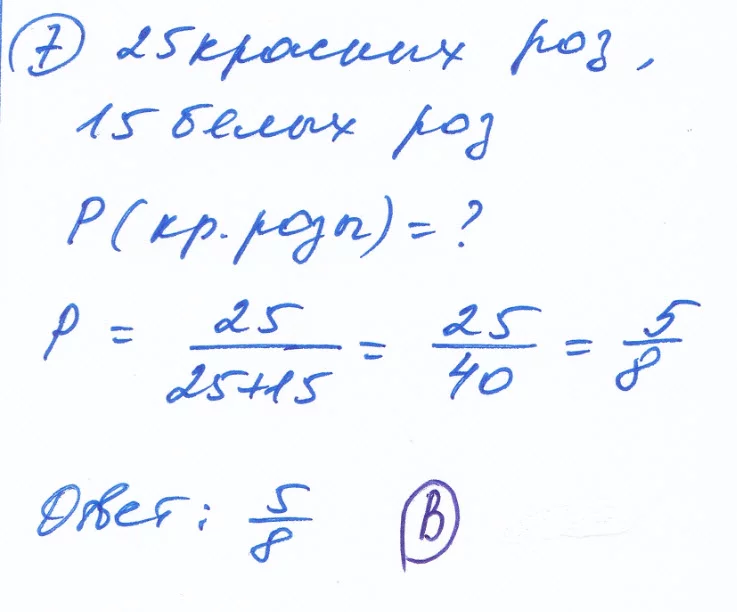 7 25 красных роз,
15 белых роз
P(кр. розы) = ?
P = 25/(25+15) = 25/40 = 5/8
Ответ: 5/8 В